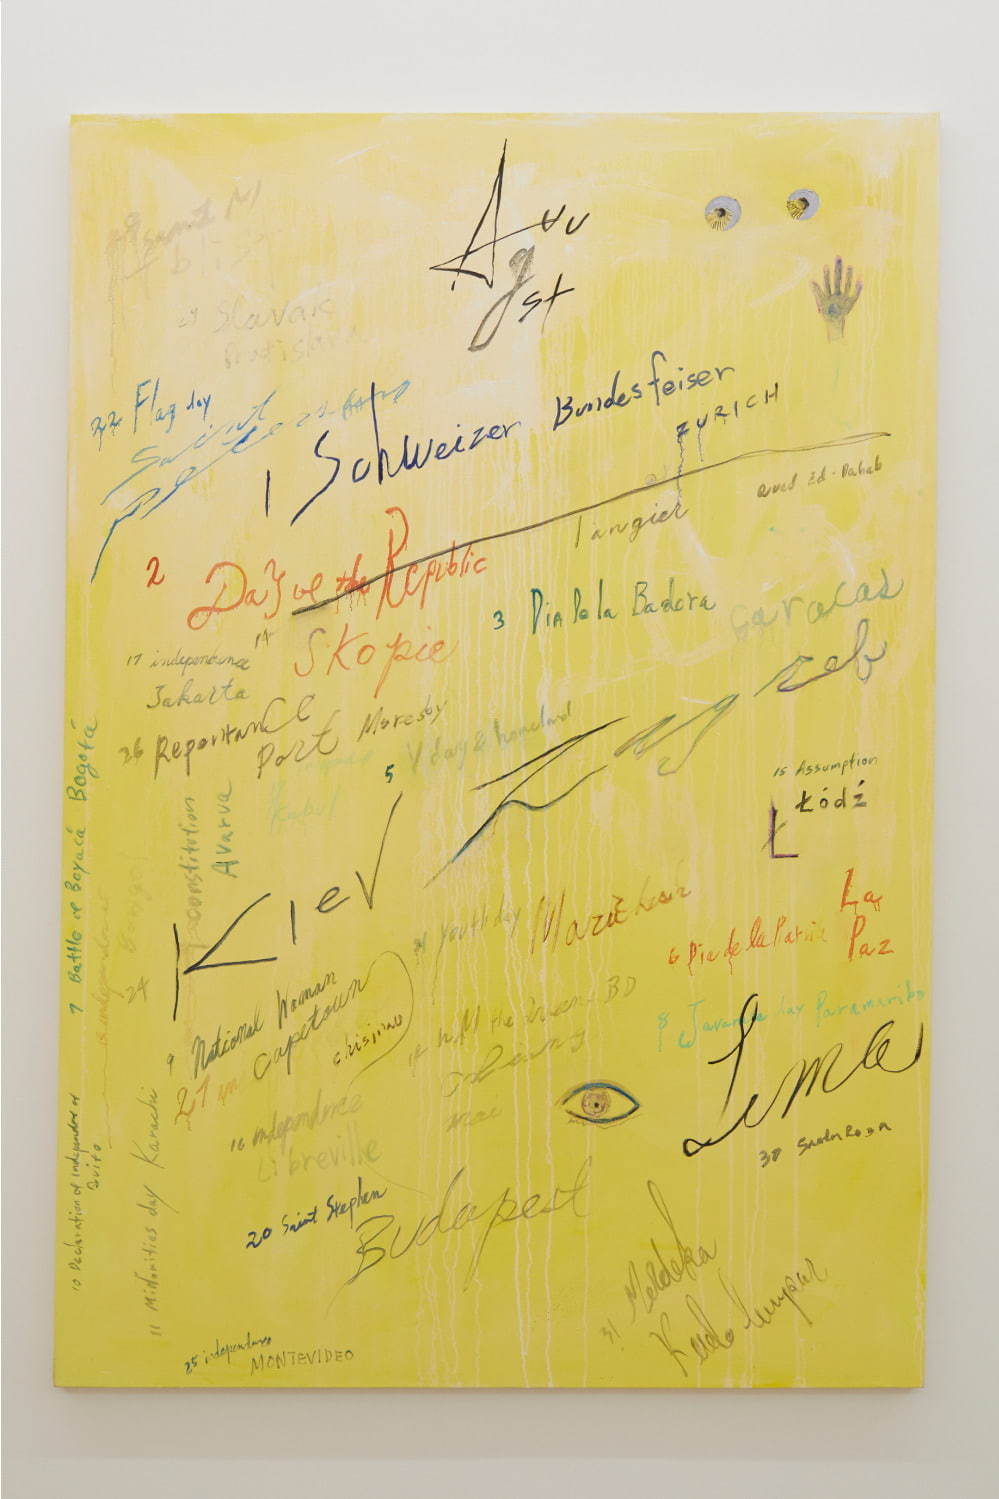 Auugst
29 Slovak
Bratislava
22 Flag day
Saint
1 Schweizer Bundesfeiser
ZYRICH
Oued Ed-Dahab
14
Tangier
2 Day oe the Republic
Skopie
3 Dia De la Badera
Caracas
17 independence
Jakarta
26 Reporitance
Port Moresby
5 V day & homeland
Zagreb
Kiev
15 Assumption
Łódź
Ł
Kabul
constitution
Avarua
7 Battle of Boyacá Bogotá
24
Youthday
6 Dia de la Patria
La
Paz
8 Javanese day Paramaribo
Lima
30 Santa Rosa
9 National Woman
Capetown
27
chisinau
H.M the Queens BD
Chiang
mai
16 independence
Libreville
20 Saint Stephen
Budapest
10 Declaration of independence of
Quito
11 Minorities day Karachi
31 Merdeka
Kuala Lumpur
25 independence
MONTEVIDEO